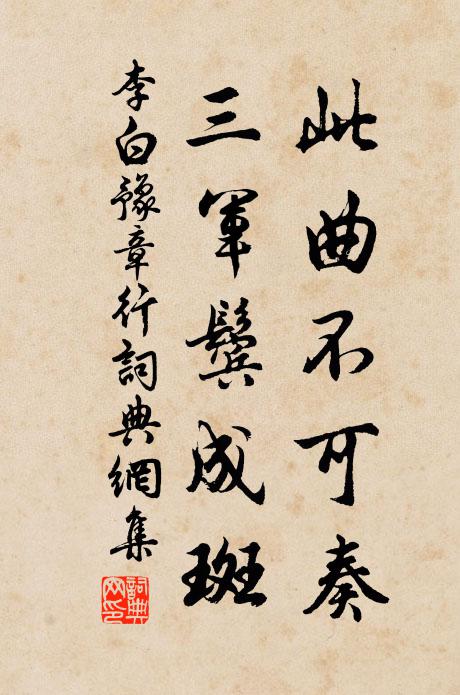 此曲不可奏
三軍鬢成斑
李白豫章行詞典網集
詞典
网印